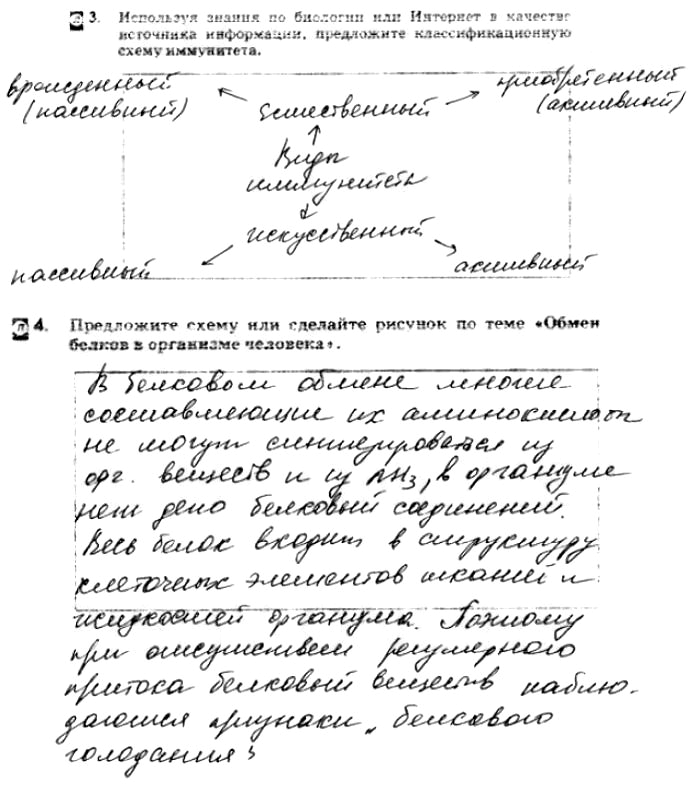 3. Используя знания по биологии или Интернет в качестве
источника информации, предложите классификационную
схему иммунитета.
врожденный приобретенный
(пассивный) естественный (активный)
Виды
иммунитета
искусственный
пассивный активный
4. Предложите схему или сделайте рисунок по теме «Обмен
белков в организме человека».
В белковом обмене многие
составляющие их аминокислоты
не могут синтезироваться из
орг. веществ и из NH3, в организме
нет депо белковый соединений.
Весь белок входит в структуру
клеточных элементов тканей и
жидкостей организма. Поэтому
при отсутствеи регулярного
притока белковый веществ наблю-
даются признаки „белкового
голодания"